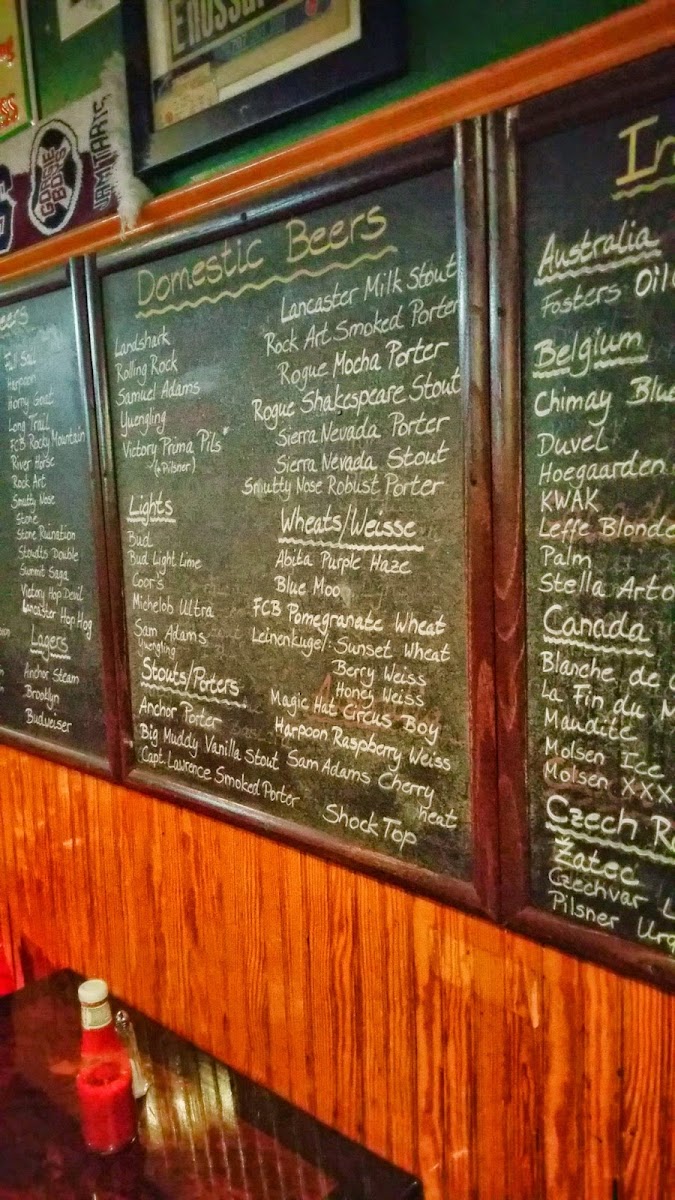 ENOSSA
GOOSIE
BOYS
JAMTITARTS
eers
Full Sail
Harpoon
Horny Goat
Long Trail
FCB Rocky Mountain
River Horse
Rock Art
Smutty Nose
Stone
Stone Ruination
Stoudts Double
Summit Saga
Victory Hop Devil
Lancaster Hop Hog
Lagers
Anchor Steam
Brooklyn
Budweiser
Domestic Beers
Landshark
Rolling Rock
Samuel Adams
Yuengling
Victory Prima Pils"
(a Pilsner)
Lights
Bud
Bud Light Lime
Coor's
Michelob Ultra
Sam Adams
Yuengling
Stouts/Porters
Anchor Porter
Big Muddy Vanilla Stout
Capt. Lawrence Smoked Porter
Lancaster Milk Stout
Rock Art Smoked Porter
Rogue Mocha Porter
Rogue Shakespeare Stout
Sierra Nevada Porter
Sierra Nevada Stout
Smutty Nose Robust Porter
Wheats/Weisse
Abita Purple Haze
Blue Moo
FCB Pomegranate Wheat
Leinenkugel: Sunset Wheat
Berry Weiss
Honey Weiss
Magic Hat Circus Boy
Harpoon Raspberry Weiss
Sam Adams Cherry
heat
Shock Top
Australia
Fosters Oil
Belgium
Chimay Blu
Duvel
Hoegaarden
KWAK
Leffe Blonde
Palm
Stella Arto
Canada
Blanche de
La Fin du M
Maudite
Molsen Ice
Molsen XXX
Czech R
Žatec
Czechvar L
Pilsner Urq